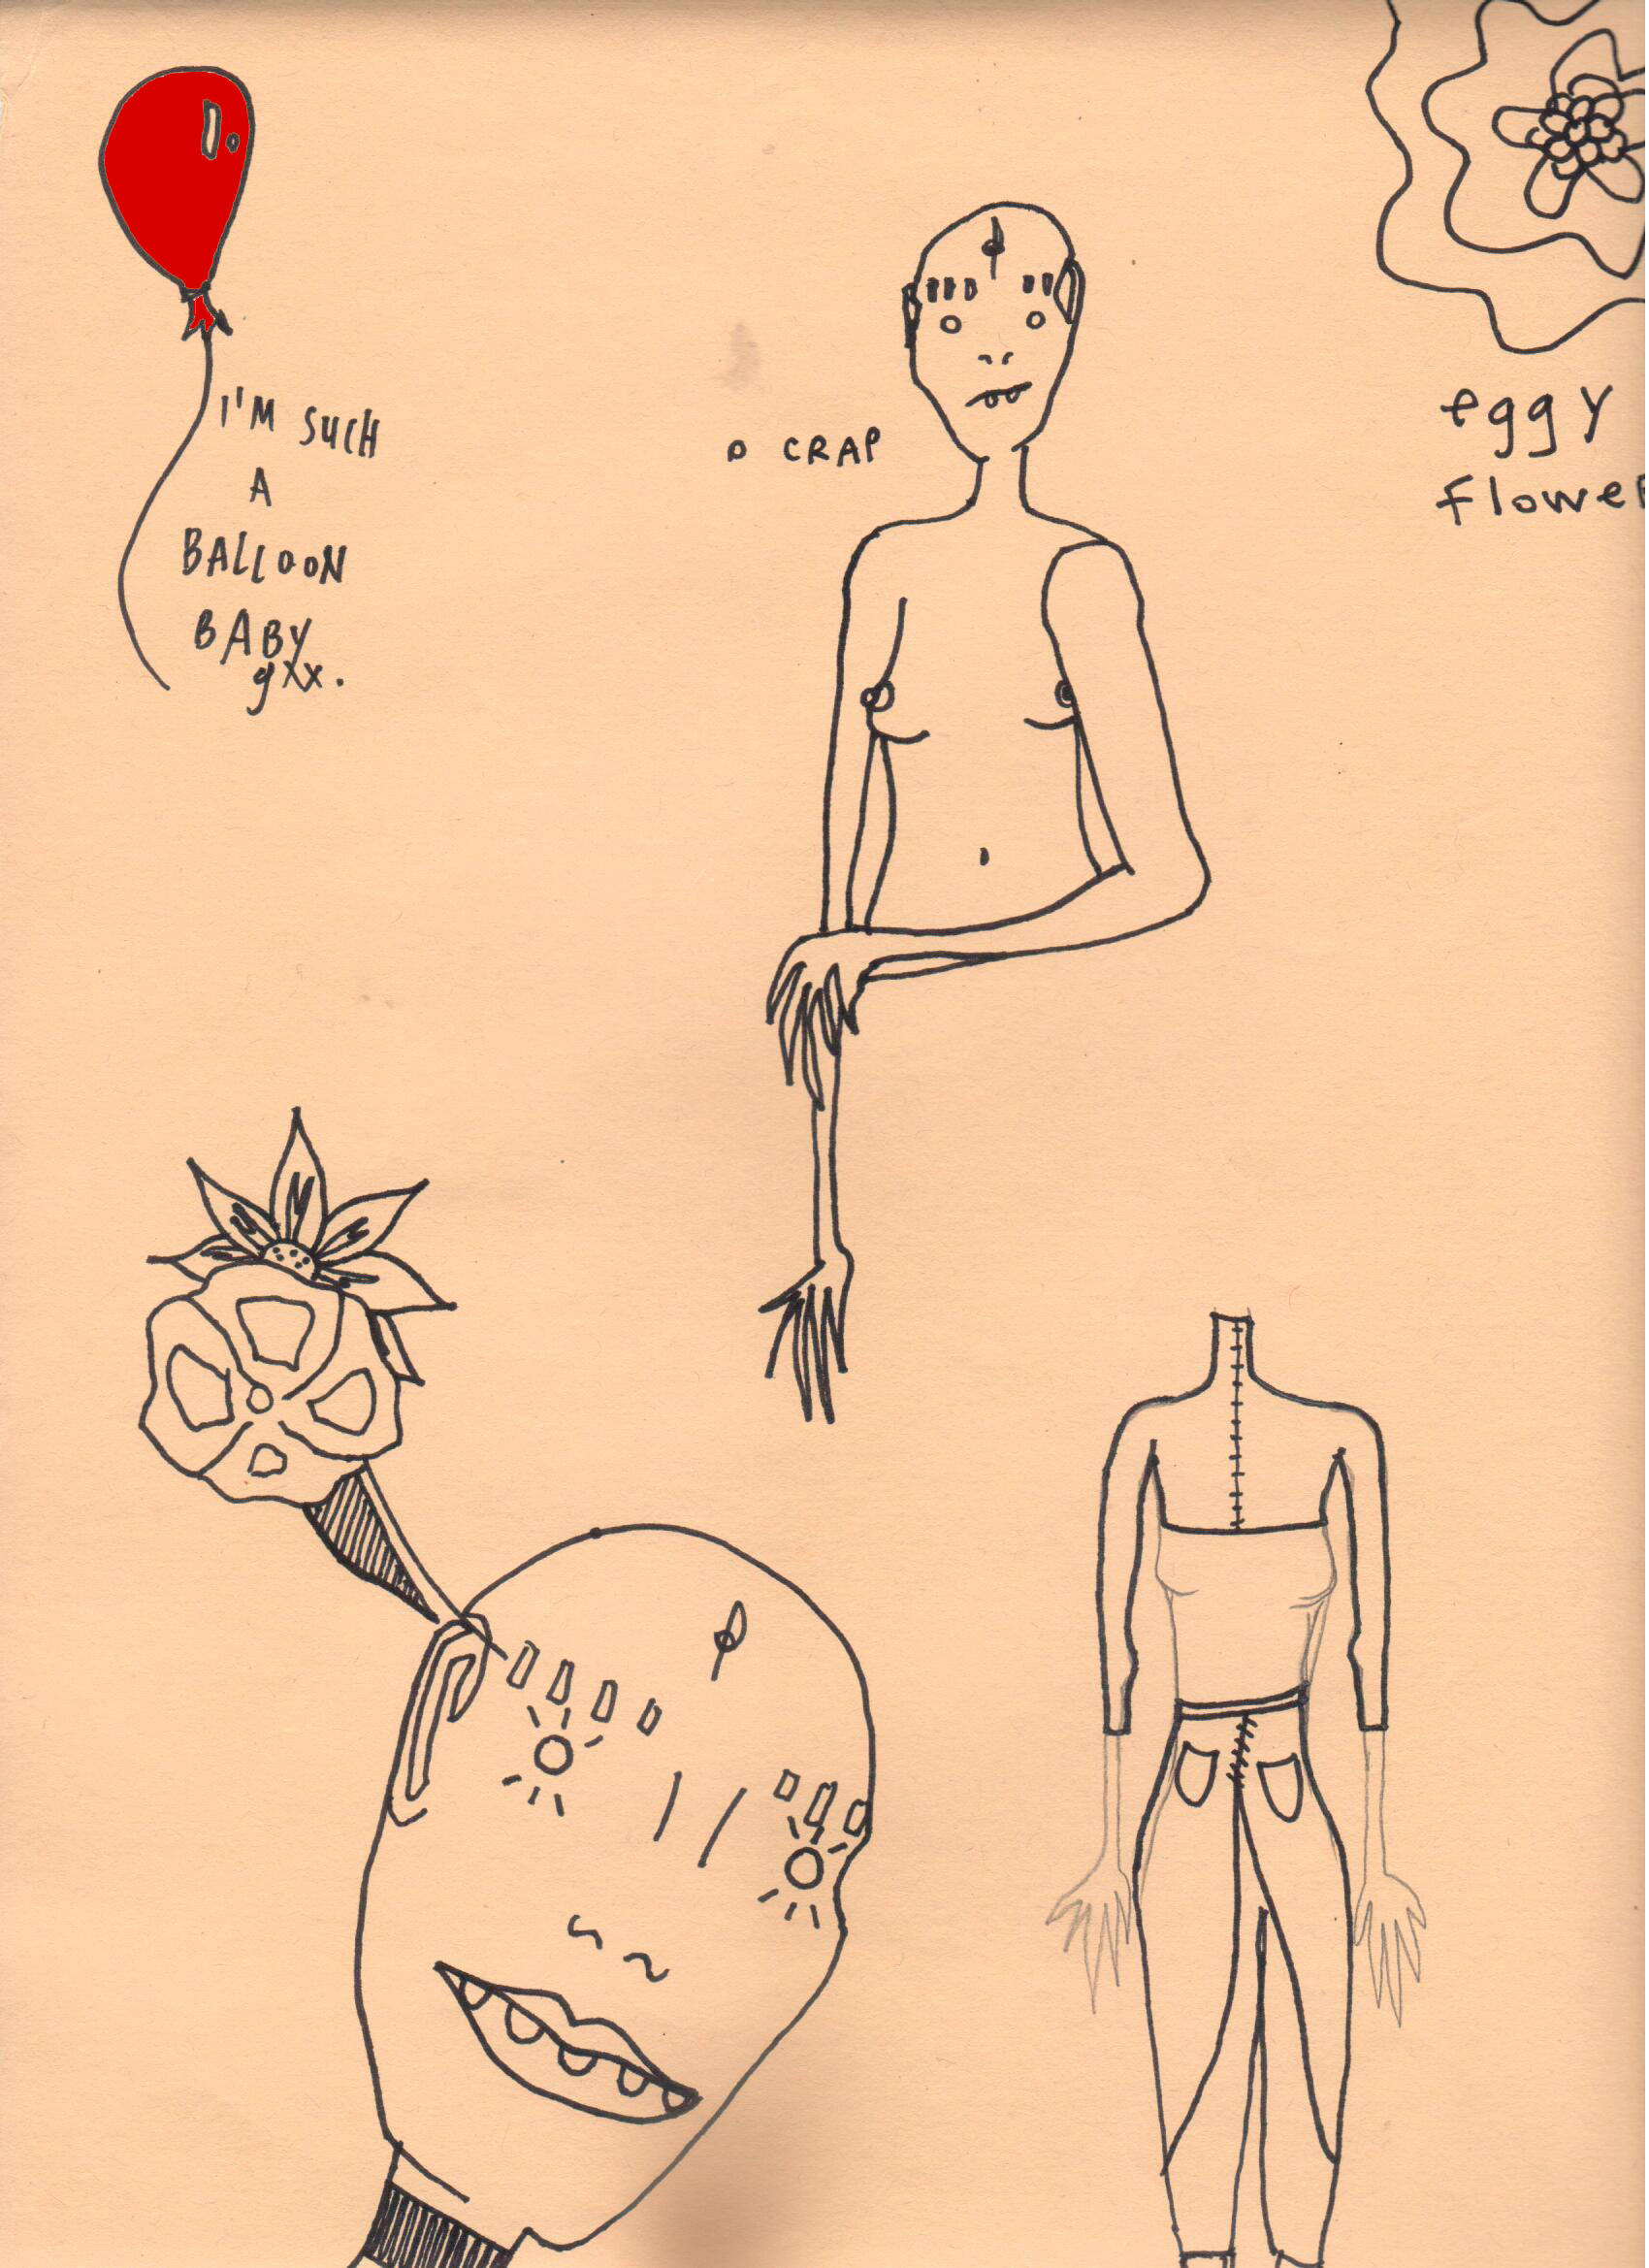 I'M SUCH
A
BALLOON
BABY
gxx.
O CRAP
eggy
flower